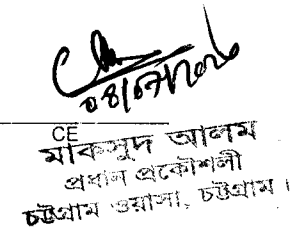 CE
মাকসুদ আলম
প্রধান প্রকৌশলী
চট্টগ্রাম ওয়াসা, চট্টগ্রাম।